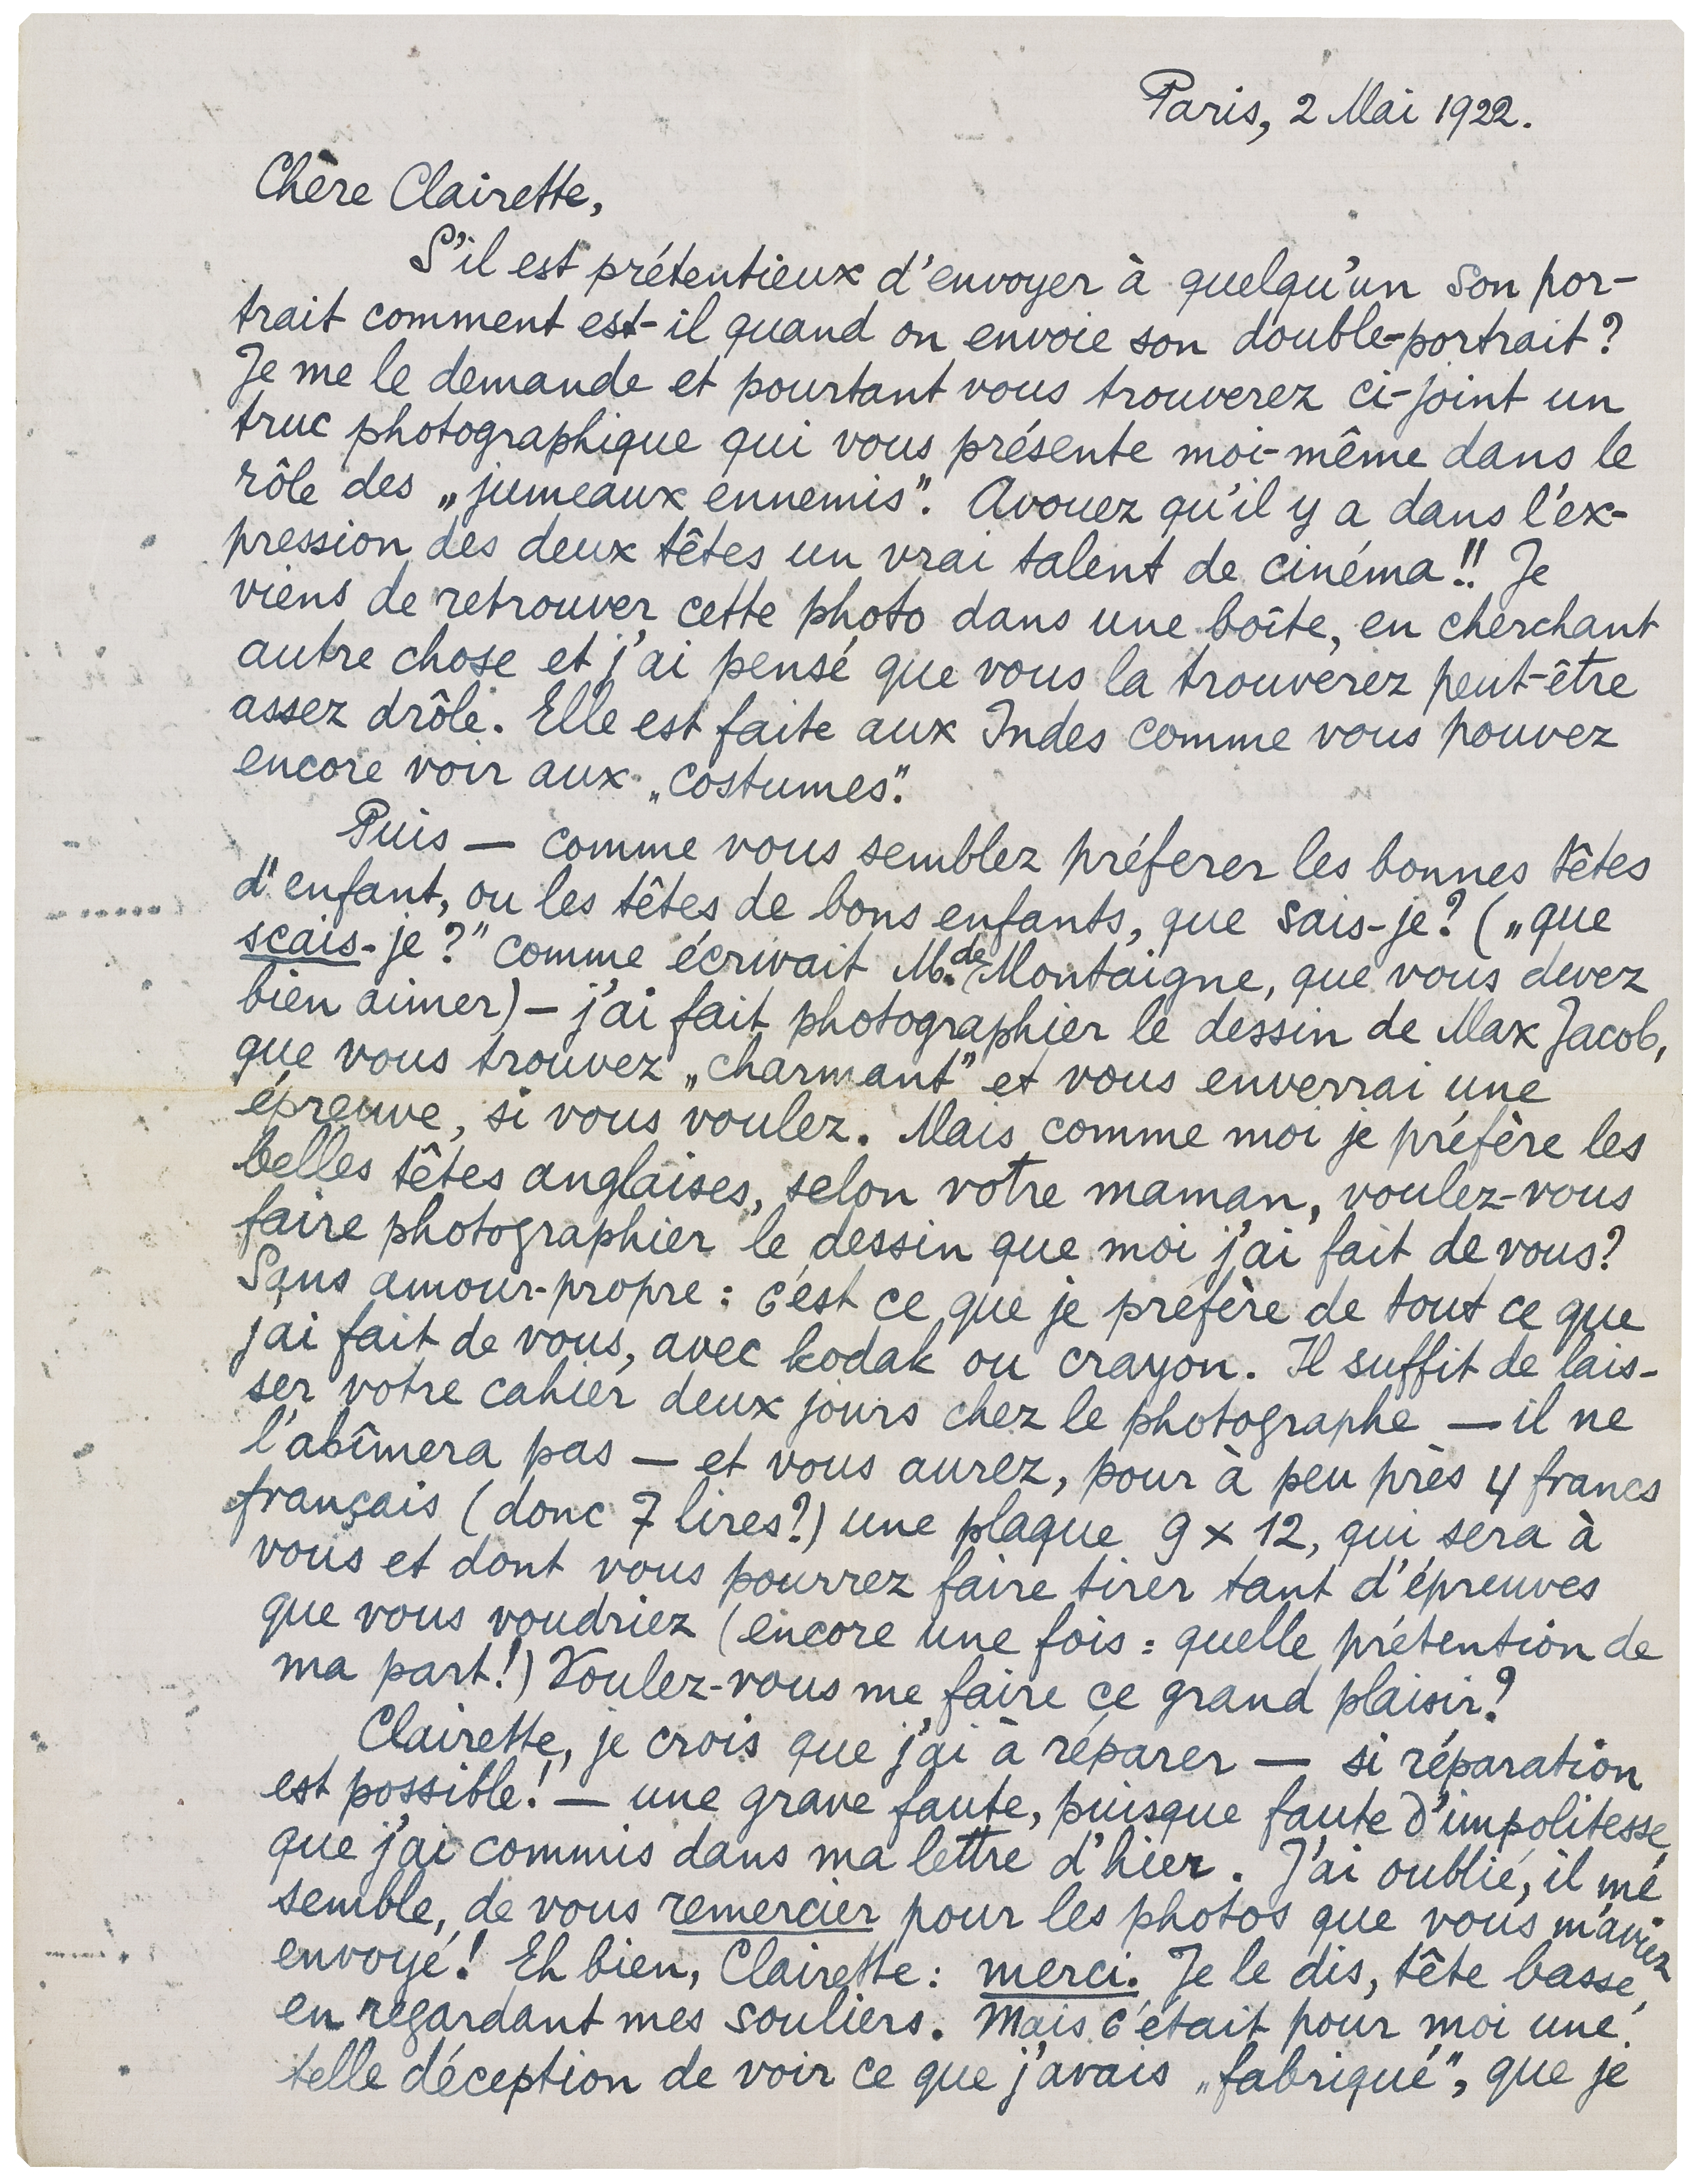 Paris, 2 Mai 1922.
Chère Clairette,
S'il est prétentieux d'envoyer à quelqu'un son por-
trait comment est-il quand on envoie son double-portrait?
Je me le demande et pourtant vous trouverez ci-joint un
truc photographique qui vous présente moi-même dans le
rôle des „jumeaux ennemis". Avouez qu'il y a dans l'ex-
pression des deux têtes un vrai talent de cinéma!! Je
viens de retrouver cette photo dans une boîte, en cherchant
autre chose et j'ai pensé que vous la trouverez peut-être
assez drôle. Elle est faite aux Indes comme vous pouvez
encore voir aux „costumes".
Puis — comme vous semblez préferer les bonnes têtes
d'enfant, ou les têtes de bons enfants, que sais-je? („que
scais-je?" comme écrivait M. de Montaigne, que vous devez
bien aimer) — j'ai fait photographier le dessin de Max Jacob,
que vous trouvez „charmant" et vous enverrai une
épreuve, si vous voulez. Mais comme moi je préfère les
belles têtes anglaises, selon votre maman, voulez-vous
faire photographier le dessin que moi j'ai fait de vous?
Sans amour-propre: c'est ce que je préfère de tout ce que
j'ai fait de vous, avec kodak ou crayon. Il suffit de lais-
ser votre cahier deux jours chez le photographe — il ne
l'abîmera pas — et vous aurez, pour à peu près 4 francs
français (donc 7 lires?) une plaque 9 x 12, qui sera à
vous et dont vous pourrez faire tirer tant d'épreuves
que vous voudriez (encore une fois: quelle prétention de
ma part!) Voulez-vous me faire ce grand plaisir?
Clairette, je crois que j'ai à réparer — si réparation
est possible! — une grave faute, puisque faute d'impolitesse,
que j'ai commis dans ma lettre d'hier. J'ai oublié, il me
semble, de vous remercier pour les photos que vous m'aviez
envoyé! Eh bien, Clairette: merci. Je le dis, tête basse,
en regardant mes souliers. Mais c'était pour moi une
telle déception de voir ce que j'avais „fabriqué", que je